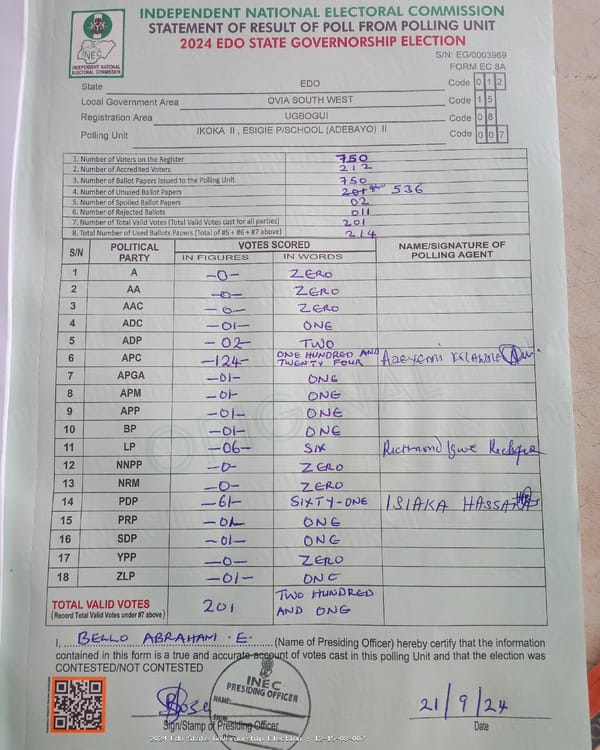 INDEPENDENT NATIONAL ELECTORAL COMMISSION
STATEMENT OF RESULT OF POLL FROM POLLING UNIT
2024 EDO STATE GOVERNORSHIP ELECTION
INEC
INDEPENDENT NATIONAL ELECTORAL COMMISSION
S/N: EG/0003969
FORM EC 8A
State EDO Code 0 1 2
Local Government Area OVIA SOUTH WEST Code 1 5
Registration Area UGBOGUI Code 0 8
Polling Unit IKOKA II , ESIGIE P/SCHOOL (ADEBAYO) II Code 0 0 7
1. Number of Voters on the Register 750
2. Number of Accredited Voters 212
3. Number of Ballot Papers Issued to the Polling Unit 750
4. Number of Unused Ballot Papers 536
5. Number of Spoiled Ballot Papers 02
6. Number of Rejected Ballots 011
7. Number of Total Valid Votes (Total Valid Votes cast for all parties) 201
8. Total Number of Used Ballots Papers (Total of #5 + #6 + #7 above) 214
S/N POLITICAL PARTY VOTES SCORED NAME/SIGNATURE OF POLLING AGENT
IN FIGURES IN WORDS
1 A -0- ZERO
2 AA -0- ZERO
3 AAC -0- ZERO
4 ADC -01- ONE
5 ADP -02- TWO
6 APC -124- ONE HUNDRED AND TWENTY FOUR
7 APGA -01- ONE
8 APM -01- ONE
9 APP -01- ONE
10 BP -01- ONE
11 LP -06- SIX Richmond Igwe
12 NNPP -0- ZERO
13 NRM -0- ZERO
14 PDP -61- SIXTY-ONE ISIAKA HASSANA
15 PRP -01- ONE
16 SDP -01- ONE
17 YPP -0- ZERO
18 ZLP -01- ONE
TOTAL VALID VOTES 201 TWO HUNDRED AND ONE
(Record Total Valid Votes under #7 above)
ORIGINAL
I, BELLO ABRAHAM .E. (Name of Presiding Officer) hereby certify that the information
contained in this form is a true and accurate account of votes cast in this polling Unit and that the election was
CONTESTED/NOT CONTESTED
INEC
PRESIDING OFFICER
NAME:
SIGN:
21/9/24
Sign/Stamp of Presiding Officer Date
2024 Edo State Governorship Election : 12-15-08-007